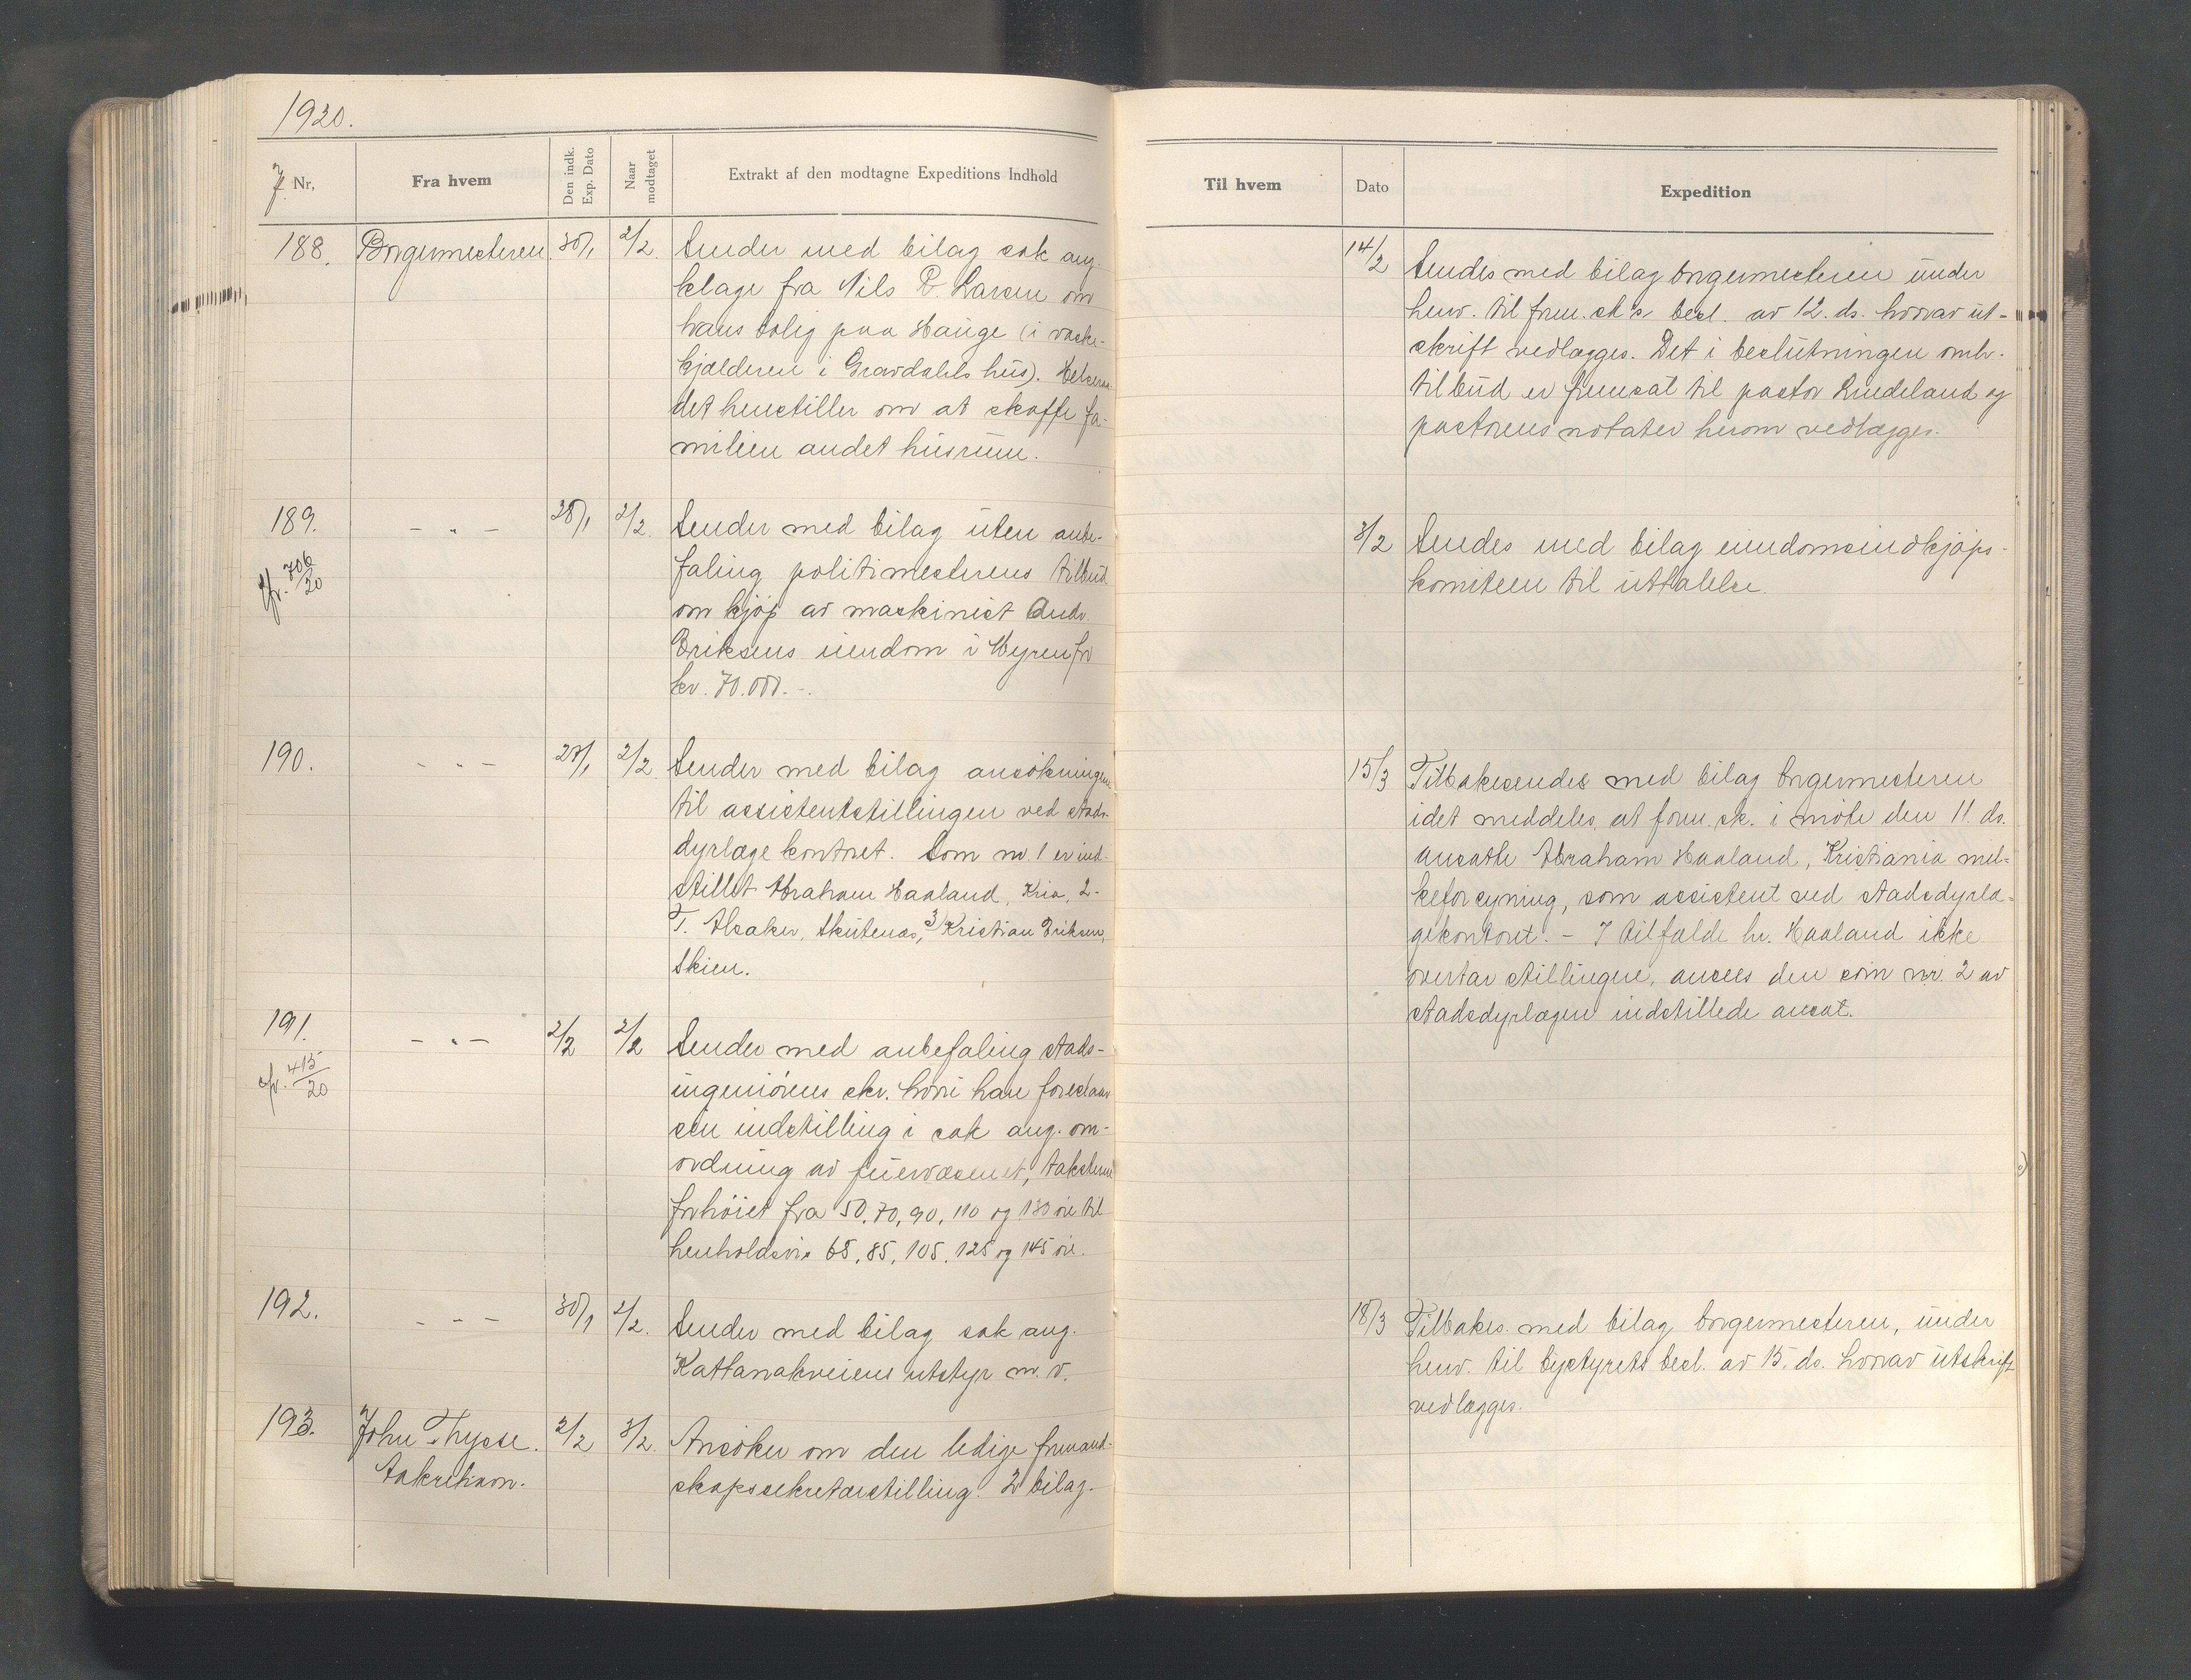 1920.
J. Nr,
Fra hvem
Den indk. Exp. Dato
Naar modtaget
Extrakt af den modtagne Expeditions Indhold
188.
Borgermesteren.
30/1
2/2.
Sender med bilag sak ang.
klage fra Nils P. Larsen om
hans bolig paa Hauge (i vaske-
kjælderen i Gravdahls hus). Helseraa-
det henstiller om at skaffe fa-
milien andet husrum.
189.
cfr. 706/20
- " -
28/1
2/2.
Sender med bilag uten anbe-
faling politimesterens tilbud
om kjøp av maskinist Andr.
Eriksens eiendom i Myren for
kr. 70.000.-.
190.
- " -
27/1
2/2
Sender med bilag ansökningene
til assistentstillingen ved stads-
dyrlægekontoret. Som nr. 1 er ind-
stillet Abraham Haaland, Kria, 2-
T. Alsaker, Skutenæs, 3) Kristian Eriksen,
Skien.
191.
cfr. 415/20
- " -
2/2
2/2
Sender med anbefaling stads-
ingeniörens skr. hvori han foreslaar
sin indstilling i sak ang. om-
ordning av feiervæsenet, taksterne
forhöiet fra 50, 70, 90, 110 og 130 öre til
henholdsvis 65, 85, 105, 125 og 145 öre.
192.
- " -
30/1
2/2.
Sender med bilag sak ang.
Kattanakveiens utstyr m. v.
193.
John Thysse.
Aakrehavn.
2/2
3/2.
Ansöker om den ledige formand-
skapssekretærstilling. 2 bilag.
Til hvem
Dato
Expedition
14/2
Sendes med bilag borgermesteren under
henv. til form. sk's besl. av 12. ds. hvorav ut-
skrift vedlægges. Det i beslutningen omh.
tilbud er fremsat til pastor Lindeland og
pastorens notater herom vedlægges.
3/2
Sendes med bilag eiendomsindkjøps-
komiteen til uttalelse.
15/3
Tilbakesendes med bilag borgermesteren
idet meddeles at form. sk. i möte den 11. ds.
ansatte Abraham Haaland, Kristiania mel-
keforsyning, som assistent ved stadsdyrlæ-
gekontoret. - I tilfælde hr. Haaland ikke
overtar stillingen, ansees den som nr. 2 av
stadsdyrlægen indstillede ansat.
18/3
Tilbakes. med bilag borgermesteren, under
henv. til bystyrets besl. av 15. ds. hvorav utskrift
vedlægges.